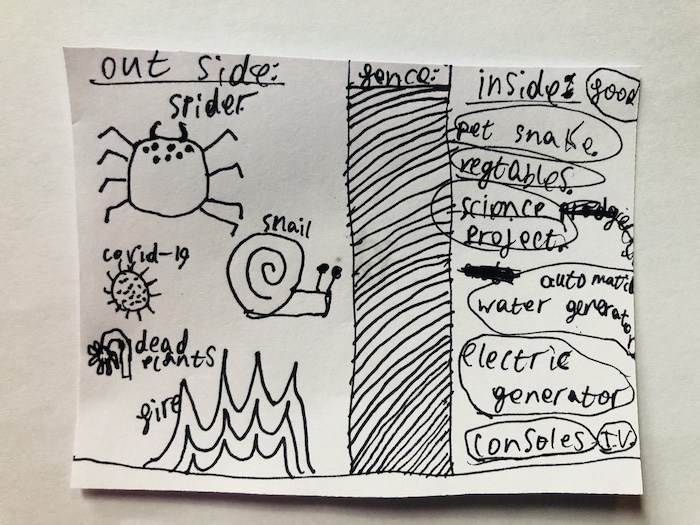 out side:
spider
snail
covid-19
dead
plants
fire
fence:
inside:
good
pet snake.
regtables.
science
project.
automatic
water generator
electric
generator
consoles
T.V.